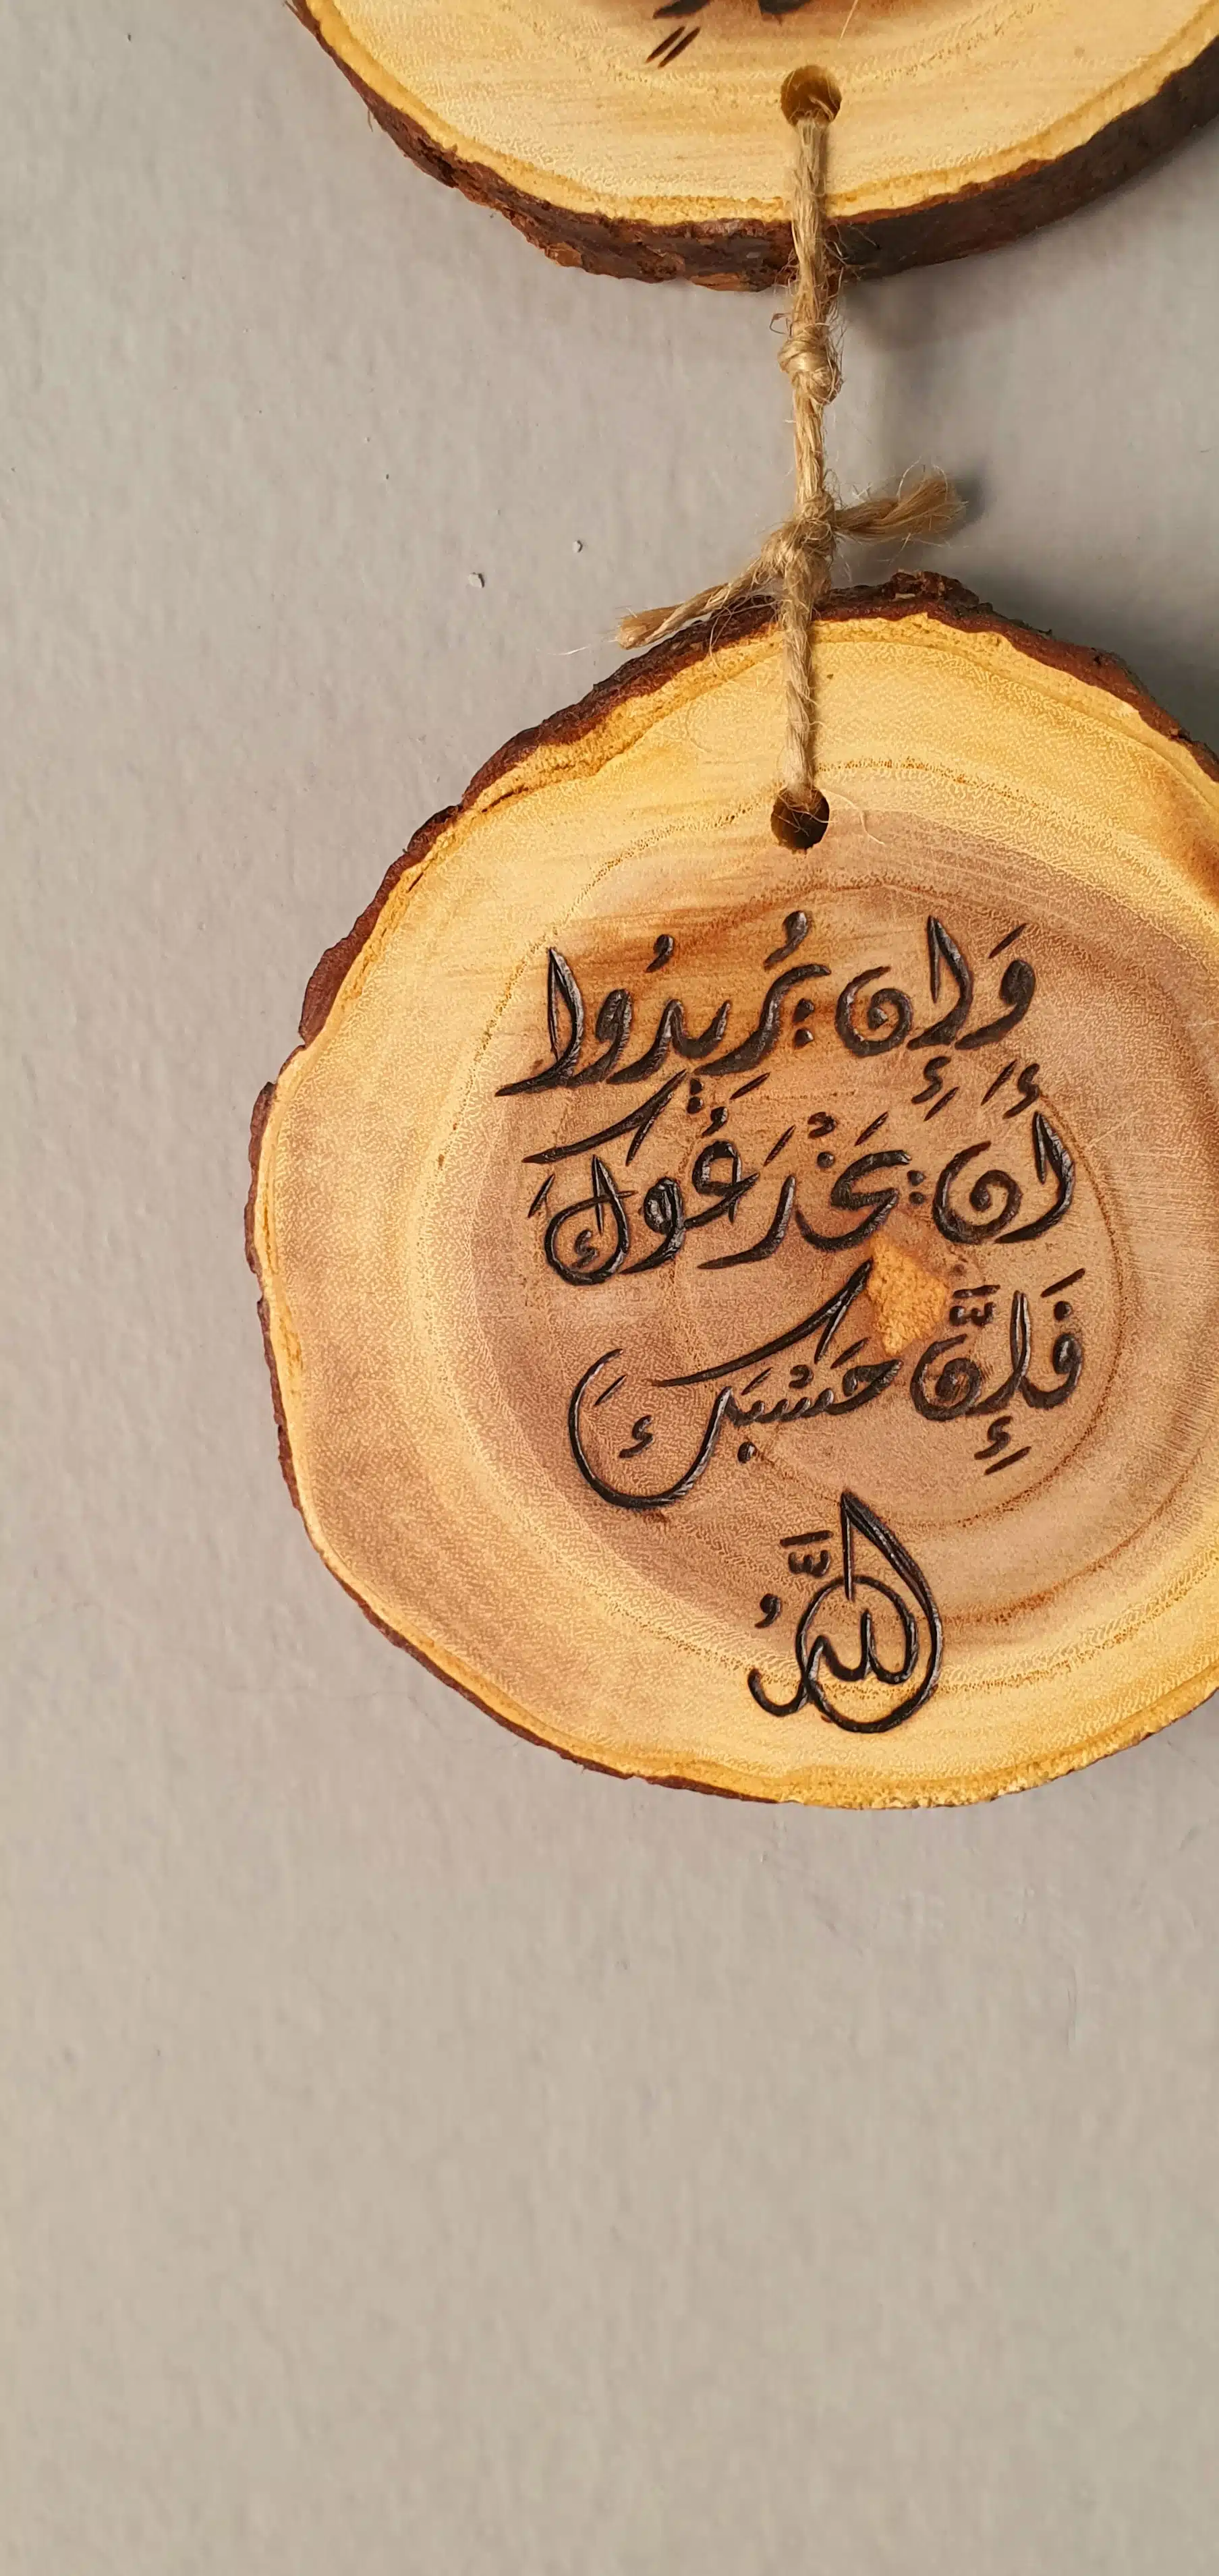 وَإِن يُرِيدُوا
أَن يَخْدَعُوكَ
فَإِنَّ حَسْبَكَ
اللَّهُ